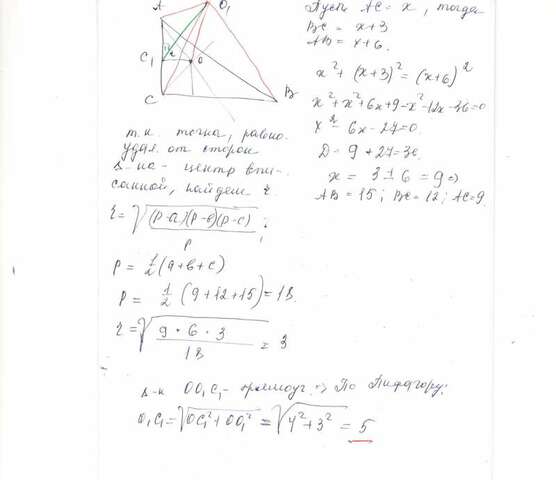 A
O₁
C₁
r
O
C
B
Пусть AC = x, тогда
BC = x+3
AB = x+6.
x² + (x+3)² = (x+6)²
x² + x² + 6x + 9 - x² - 12x - 36 = 0
x² - 6x - 27 = 0.
D = 9 + 27 = 36
x = 3 ± 6 = 9 ⇒
AB = 15; BC = 12; AC = 9.
т.к. точка, равно-
удал. от сторон
Δ-ка - центр впи-
санной, найдем r.
r = √((p-a)(p-b)(p-c)/p);
p = 1/2 (a+b+c)
p = 1/2 (9+12+15) = 18
r = √(9·6·3/18) = 3
Δ-к OO₁C₁ - прямоуг. ⇒ По Пифагору:
O₁C₁ = √(OC₁² + OO₁²) = √(4² + 3²) = 5